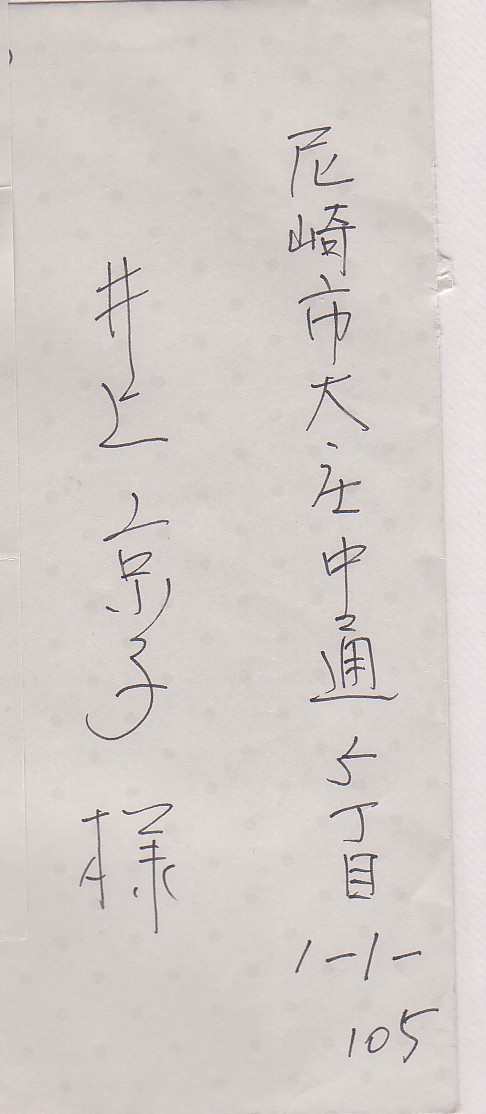 尼崎市大庄中通5丁目
1-1-
105
井上京子様